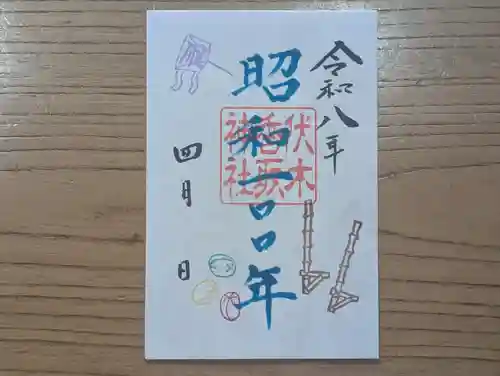 令和八年
昭和一〇〇年
伏木
香取
神社
四月 日